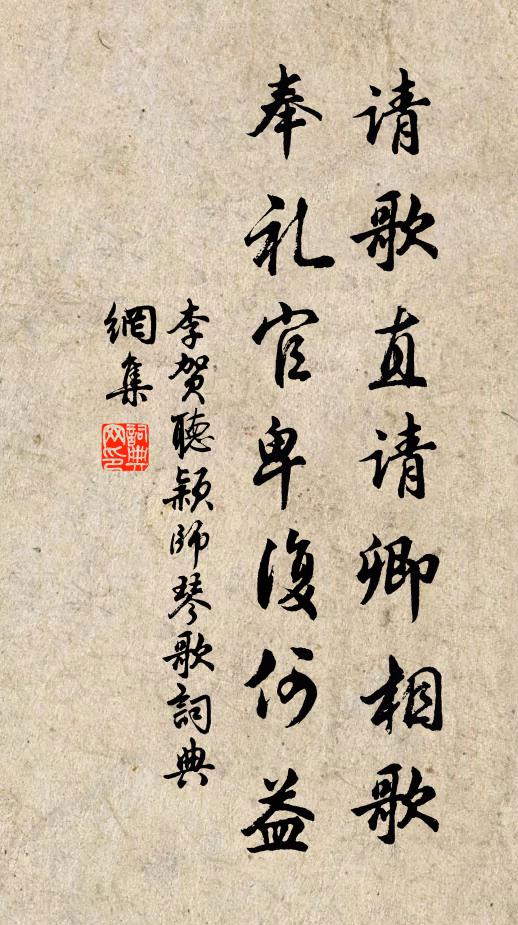 请歌直请卿相歌
奉礼官卑復何益
李贺聽颖师琴歌詞典
網集
詞典网印